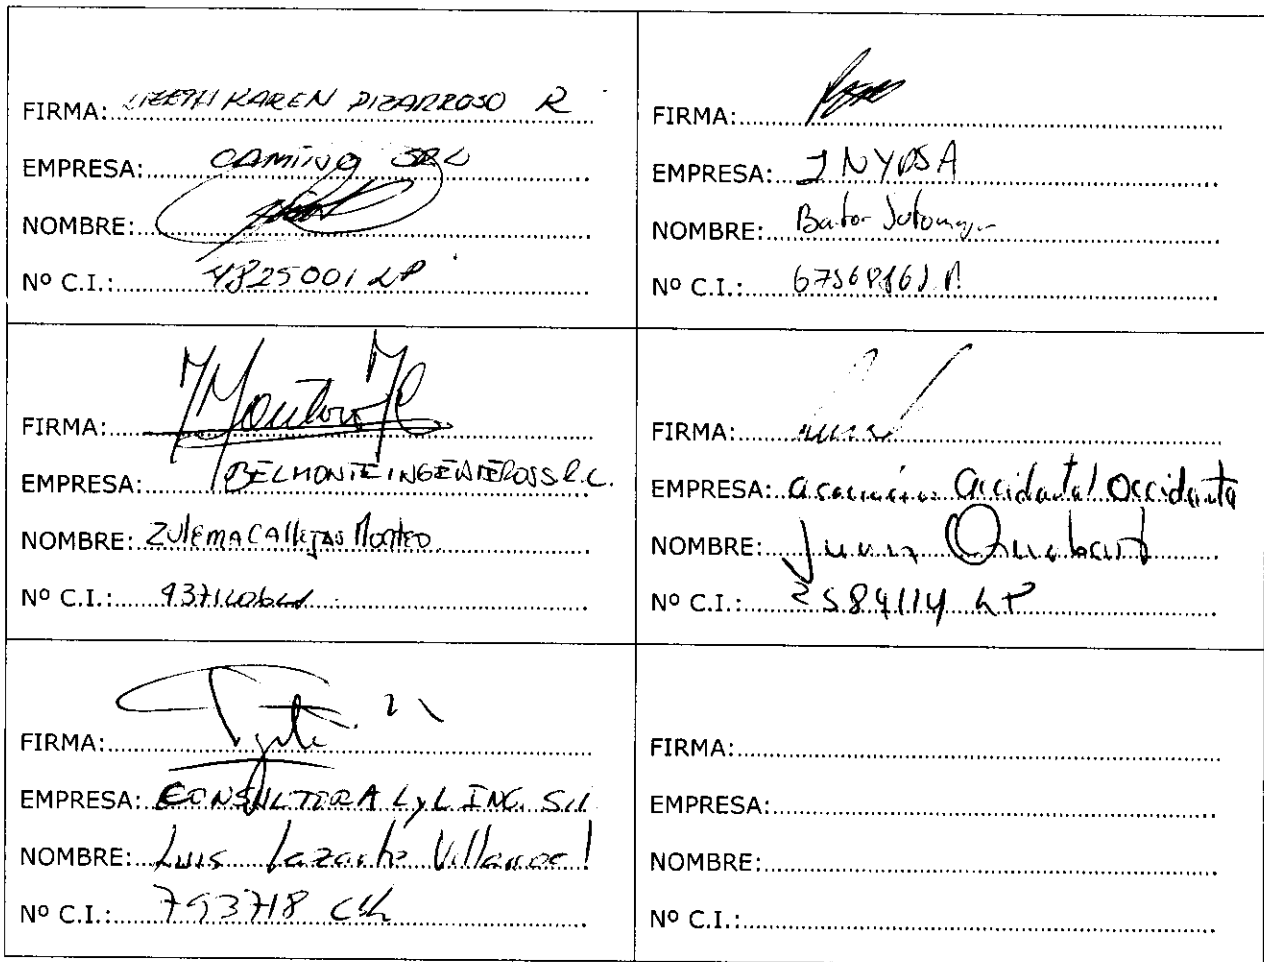 FIRMA: LIZETH KAREN PIZARROSO R
EMPRESA: CAMINO SRL
NOMBRE:
Nº C.I.: 4825001 LP
FIRMA:
EMPRESA: INYPSA
NOMBRE:
Nº C.I.:
FIRMA:
EMPRESA: BELMONTE INGENIEROS S.R.L.
NOMBRE: Zulema Callejas Monteo
Nº C.I.:
FIRMA:
EMPRESA: Asociación Accidental Occidente
NOMBRE: Juan
Nº C.I.: 2584114 LP
FIRMA:
EMPRESA: CONSULTORA LyL ING. S.rl
NOMBRE: Luis Lazarte Villarroel
Nº C.I.: 793718
FIRMA:
EMPRESA:
NOMBRE:
Nº C.I.: